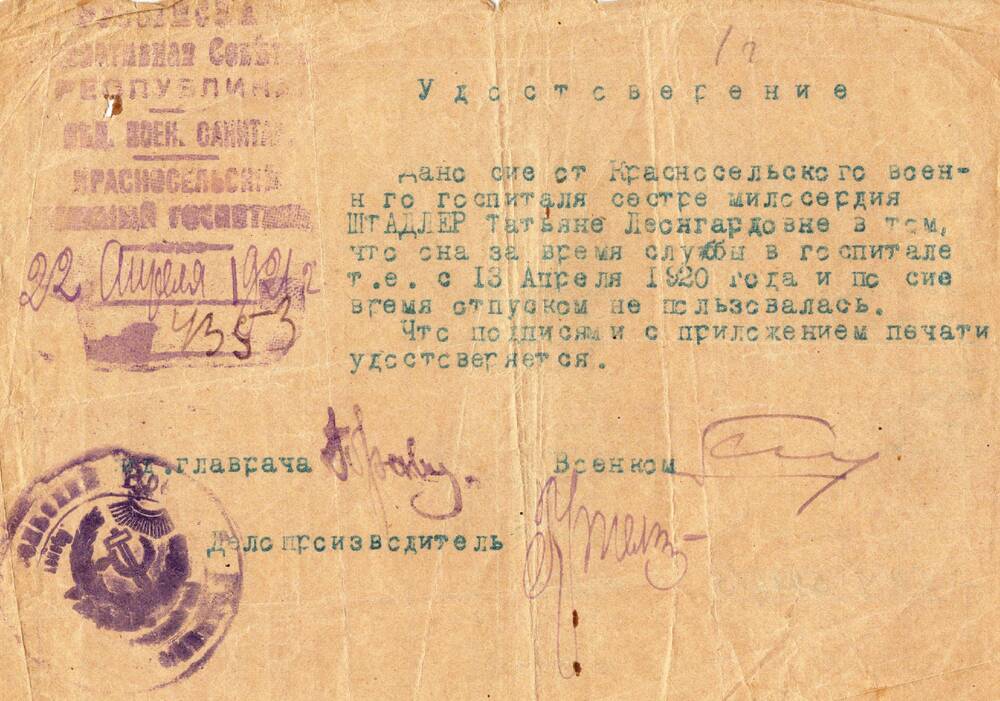 РЕСПУБЛИКА
ВѢД. ВОЕН. САНИТАР
КРАСНОСЕЛЬСКІЙ
22 Апреля 1921 г
4353
Удостоверение
Дано сие от Красносельского воен-
н го госпиталя сестре милосердия
ШТАДЛЕР Татьяне Леонгардовне в том,
что она за время службы в госпитале
т.е. с 13 Апреля 1920 года и по сие
время отпуском не пользовалась.
Что подписями с приложением печати
удостоверяется.
главрача
Военком
Делопроизводитель